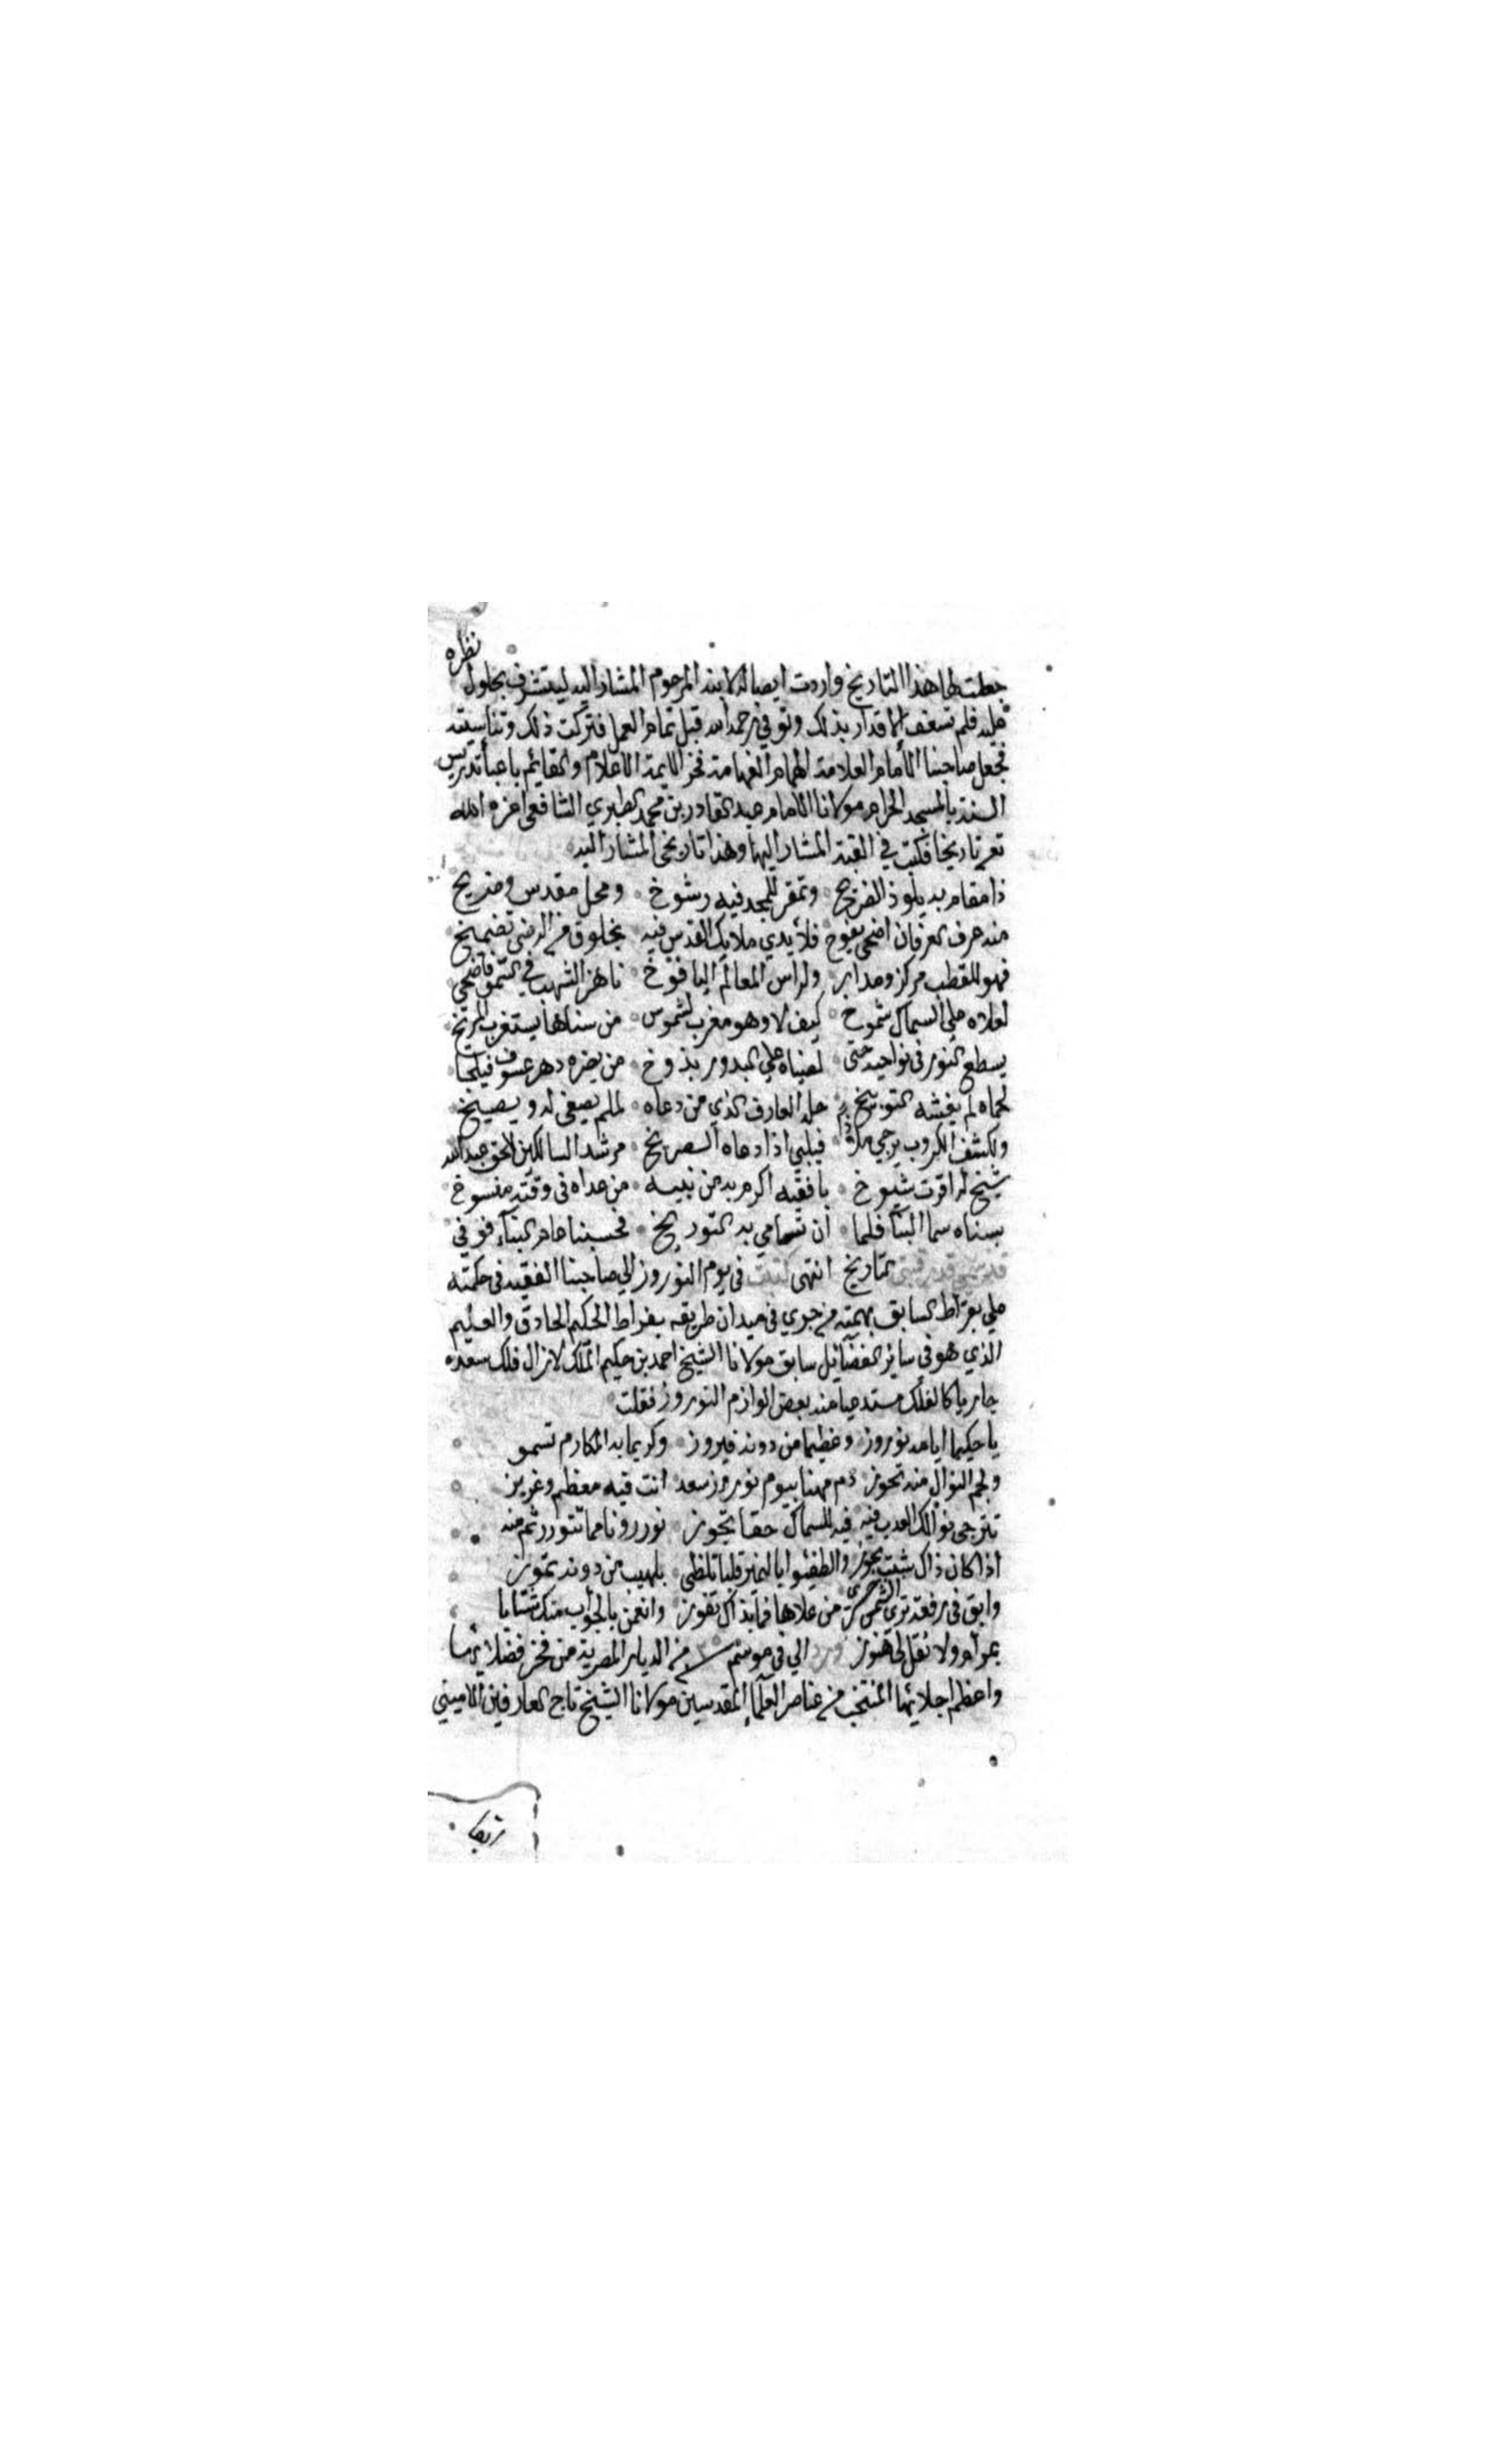 نظره
جعلت لها هذا التاريخ واردت ايصاله لابنه المرحوم المشار اليه ليتشرف بحلول
عليه فلم تسعف الاقدار بذلك وتوفي رحمه الله قبل تمام العمل فتركت ذلك وتناسيته
فجعل صاحبنا الامام العلامة الهمام الفهامة فخر الايمة الاعلام والقايم باعبا تدريس
السنة بالمسجد الحرام مولانا الامام عبد القادر بن محمد الطبري الشافعي اعزه الله
تع تاريخا فكتب في القبة المشار اليها وهذا تاريخي المشار اليه
ذا مقام به يلوذ الفريخ ومقر للمجد فيه رسوخ ومحل مقدس وضريح
منه عرف العرفان اضحى يفوح فلايدي ملايك القدس فيه بخلوق من الرضى تضميخ
فهو للقطب مركز ومدار ولراس المعالم اليافوخ ناهز الشهب في السمو فاضحى
لعلاه على السماك شموخ كيف لا وهو مغرب لشموس من سناها يستغرب المريخ
يسطع النور في نواحيه حتى لضياه على البدور بذوخ من يضره دهر عسوف فيلجا
لحماه لم يغشه التوبيخ حله العارف الذي من دعاه لملم يصغي له ويصيخ
ولكشف الكروب يرجى ملاذا فيلبي اذا دعاه الصريخ مرشد السالكين لاحق عبد الله
شيخ له اقرت شيوخ يا فقيه اكرم به من نبيه من عداه في وقته منسوخ
بسناه سما البنا فلما ان تسامى به التوريخ فحسبنا عام البناء فوفي
بتاريخ انتهى كتبت في يوم النوروز الى صاحبنا الفقيه في حكمته
على بقراط السابق بهمته من جرى في ميدان طريقه بقراط الحكيم الحاذق والعليم
الذي هو في ساير الفضائل سابق مولانا الشيخ احمد بن حكيم الملك لازال فلك سعده
جاريا كالفلك مستدعيا منه بعض لوازم النوروز فقلت
يا حكيما ايامه نوروز وعظيما من دونه فيروز وكريما به المكارم تسمو
ولجم النوال منه تحوز دم مهنا بيوم نوروز سعد انت فيه معظم وعزيز
تترجى نوالك العدب فيه فيه للسماك حقا تجوز نوررونا مما تنورر ثم منه
اذا كان ذاك شيئ يجوز والطفئوا يالنمير قلبا تلظى بلهيب من دونه تموز
وابق في رفعة ترى الشمس حسرى من علاها فما بذاك تفوز وانعمن بالجواب منك شتابا
بمرام ولا تقل لي هنوز ورد الي في موسم من الديار المصرية من فخر فضلايها
واعظم اجلايها المنتخب من عناصر العلما المقدسين مولانا الشيخ تاج العارفين الاميني